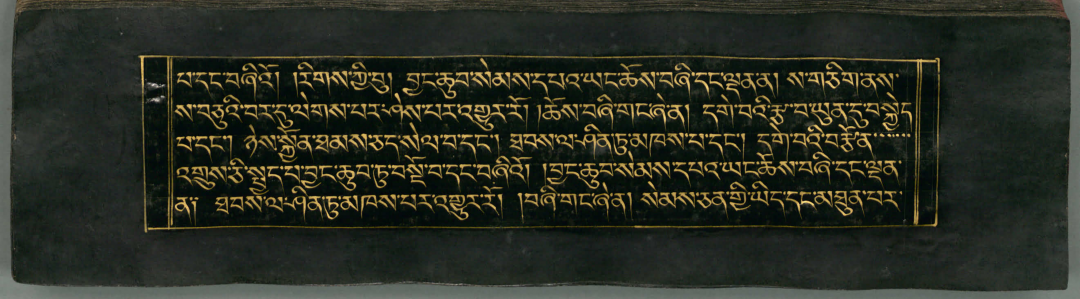 པ་དང་བཞིའོ། །རིགས་ཀྱི་བུ། བྱང་ཆུབ་སེམས་དཔའ་ཡང་ཆོས་བཞི་དང་ལྡནན། ས་གཅིག་ནས་
ས་བཅུའི་བར་དུ་ལེགས་པར་ཤེས་པར་འགྱུར་རོ། །ཆོས་བཞི་གང་ཞེ་ན། དགེ་བའི་རྩ་བ་ཡུན་དུ་བསྐྱེད
པ་དང༌། ཉེས་སྐྱོན་ཐམས་ཅད་སེལ་བ་དང༌། ཐབས་ལ་ཤིན་ཏུ་མཁས་པ་དང༌། དགེ་བའི་བརྩོན་
འགྲུས་ཅི་སྤྱད་པ་བྱང་ཆུབ་ཏུ་བསྔོ་བ་དང་བཞིའོ། །བྱང་ཆུབ་སེམས་དཔའ་ཡང་ཆོས་བཞི་དང་ལྡན་
ན། ཐབས་ལ་ཤིན་ཏུ་མཁས་པར་འགྱུར་རོ། །བཞི་གང་ཞེ་ན། སེམས་ཅན་གྱི་ཡིད་དང་མཐུན་པར་